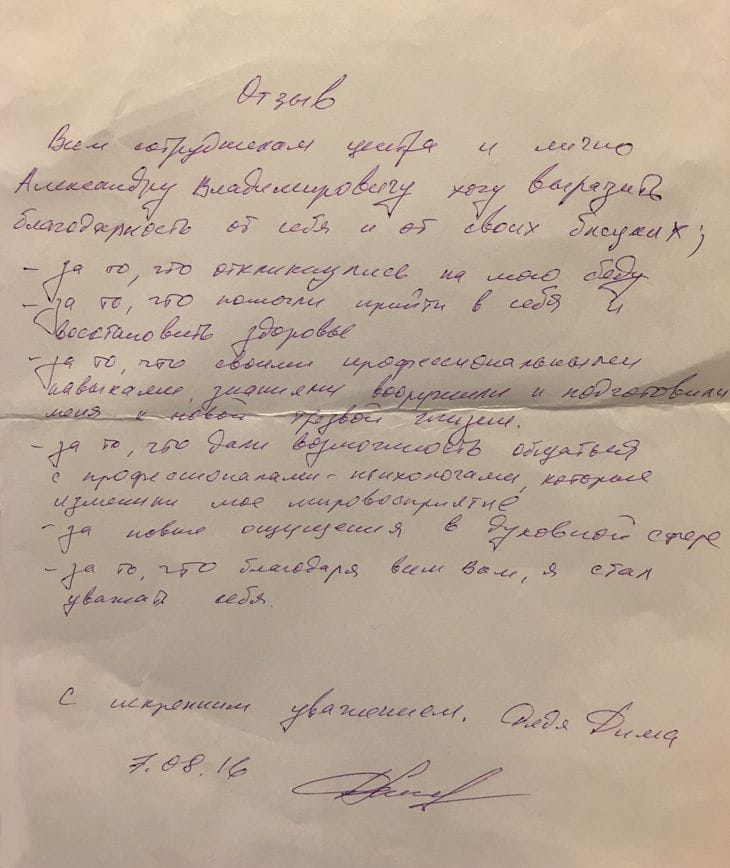 Отзыв
Всем сотрудникам центра и лично
Александру Владимировичу хочу выразить
благодарность от себя и от своих близких;
- за то, что откликнулись на мою беду
- за то, что помогли прийти в себя и
восстановить здоровье
- за то, что своими профессиональными
навыками, знаниями вооружили и подготовили
меня к новой трезвой жизни.
- за то, что дали возможность общаться
с профессионалами-психологами, которые
изменили мое мировосприятие
- за новые ощущения в духовной сфере
- за то, что благодаря всем Вам, я стал
уважать себя.
С искренним уважением. Дядя Дима
7.08.16